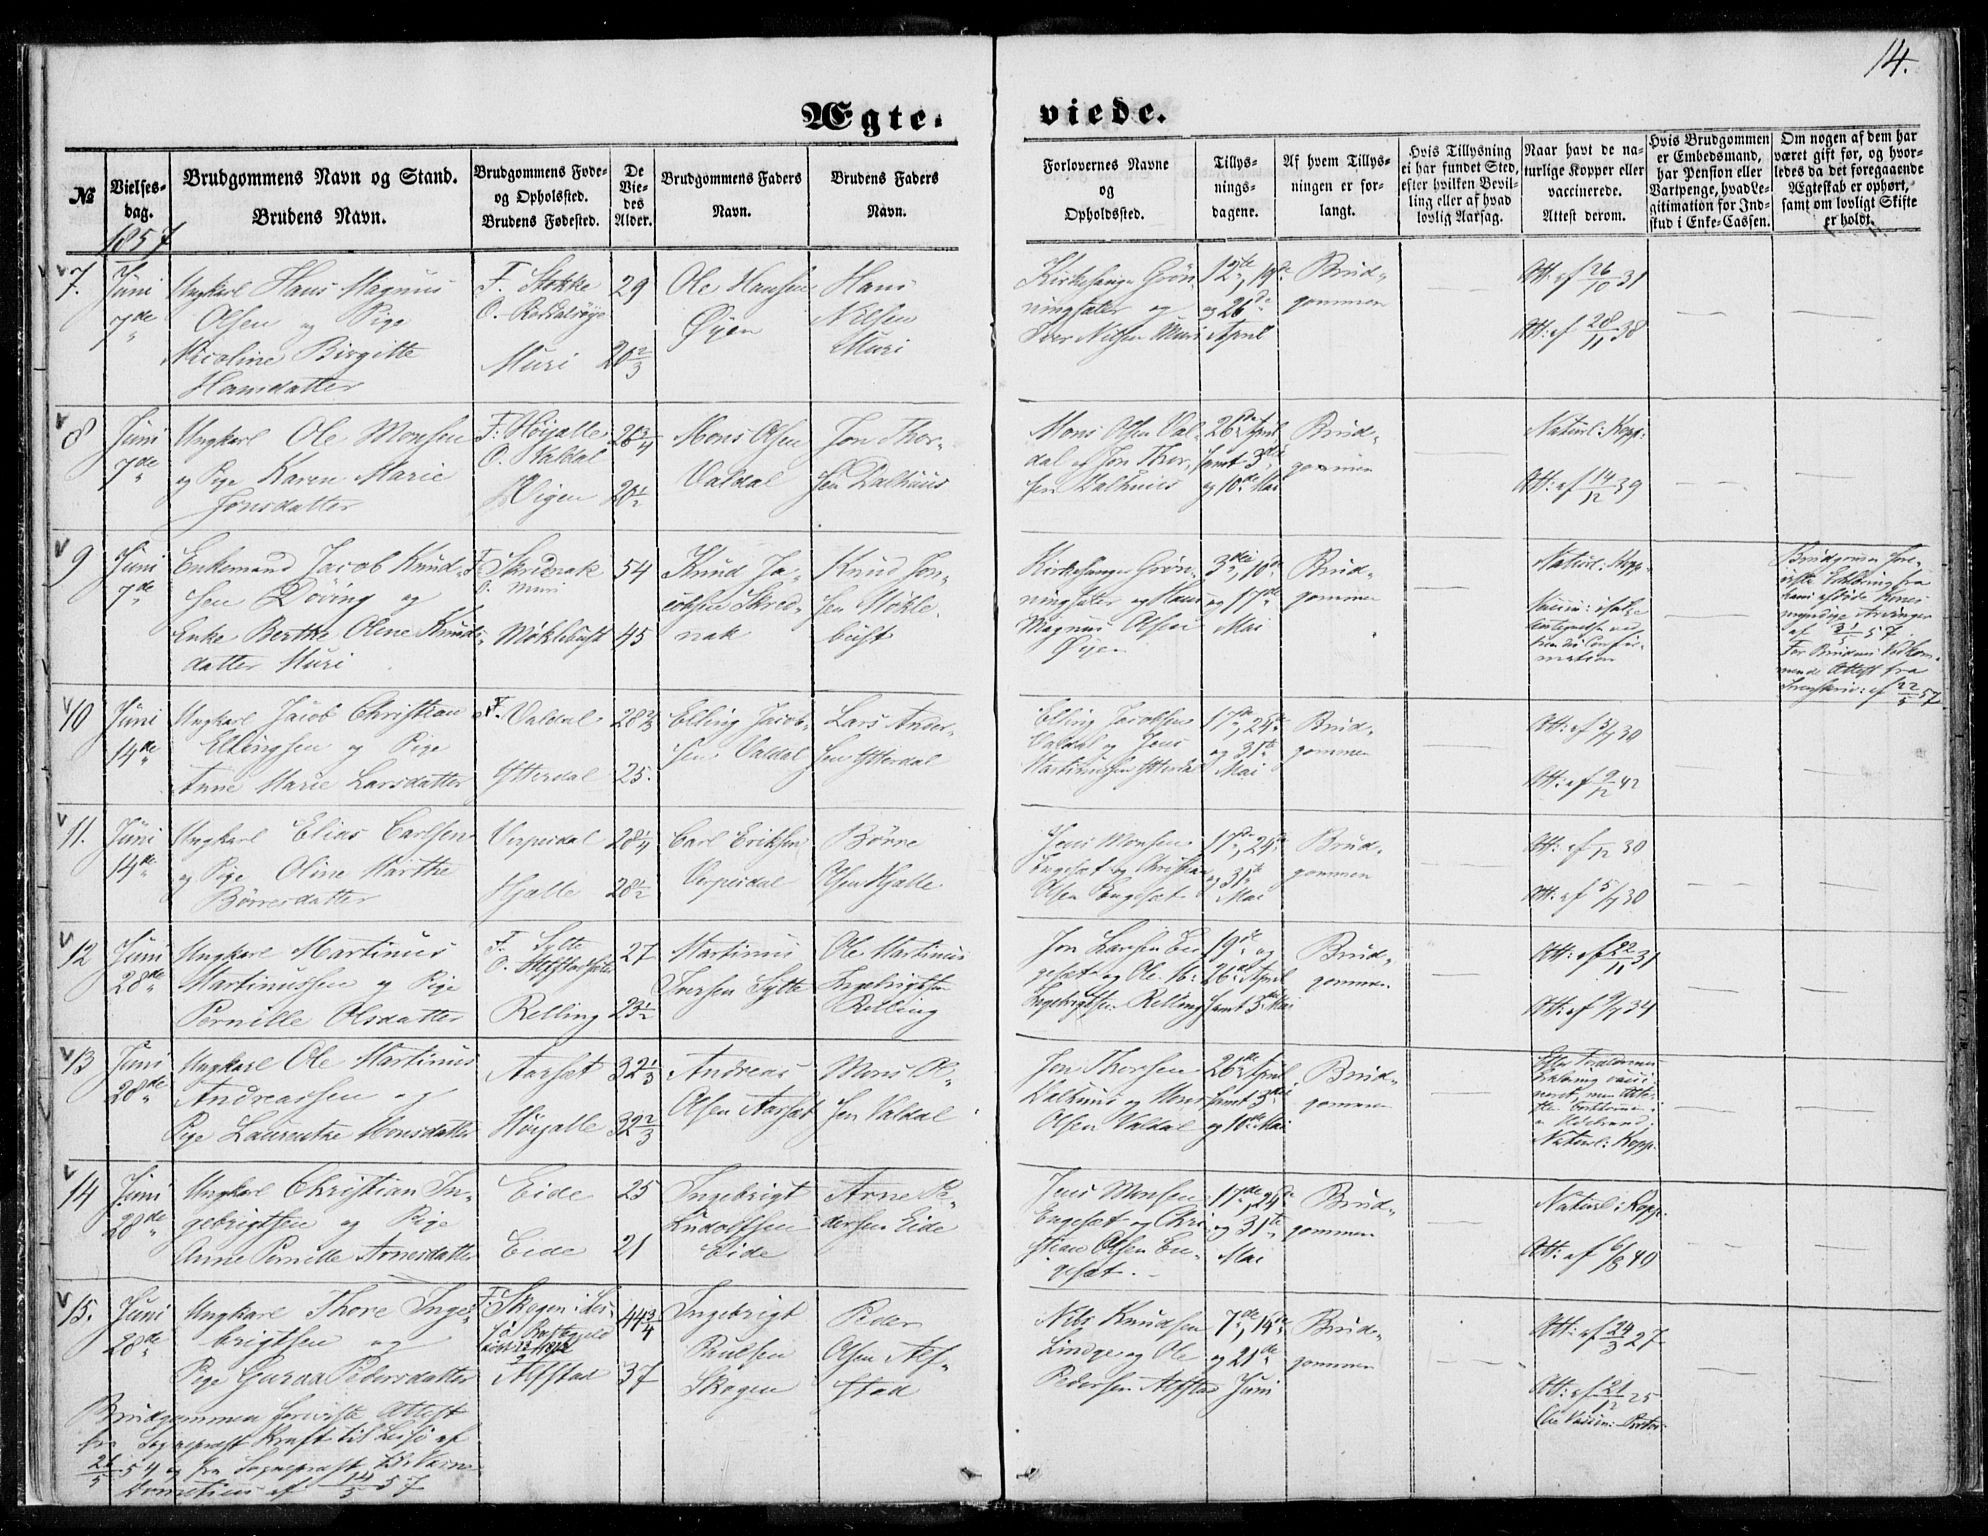 14.
Ægte-
viede.
№
Vielses-
dag.
Brudgommens Navn og Stand.
Brudens Navn.
Brudgommens Føde-
og Opholdssted.
Brudens Fødested.
De
Vie-
des
Alder.
Brudgommens Faders
Navn.
Brudens Faders
Navn.
Forlovernes Navne
og
Opholdssted.
Tillys-
nings-
dagene.
Af hvem Tillys-
ningen er for-
langt.
Hvis Tillysning
ei har fundet Sted,
efter hvilken Bevil-
ling eller af hvad
lovlig Aarsag.
Naar havt de na-
turlige Kopper eller
vaccinerede.
Attest derom.
Hvis Brudgommen
er Embedsmand,
har Pension eller
Vartpenge, hvad Le-
gitimation for Ind-
skud i Enke-Cassen.
Om nogen af dem har
været gift før, og hvor-
ledes da det foregaaende
Ægteskab er ophørt,
samt om lovligt Skifte
er holdt.
1857
7.
Juni
7de
Ungkarl Hans Magnus
Olsen og Pige
Nicoline Birgitte
Hansdatter
F. Stokke
O.
Muri
29
20 2/3
Ole Hansen
Øyen
Hans
Nilsen
Muri
Kirkesanger Grøn
ningsæter og
Iver Nilsen Muri
12te, 19de
og 26de
April
Brud-
gommen
Att: af 26/10 31
Att: af 28/11 38
8
Juni
7de
Ungkarl Ole Monsen
og Pige Karen Marie
Jonsdatter
F: Høijalle
O. Valdal
Vigen
26 3/4
20 1/2
Mons Olsen
Valdal
Jon Thor-
sen Dalhuus
Mons Olsen Val-
dal og Jon Thor-
sen Dalhuus
26de April
samt 3die
og 10de Mai
Brud-
gommen
Naturl: Kopp:
Att: af 14/12 39
9
Juni
7de
Enkemand Jacob Knud-
sen Døving og
Enke Berthe Oline Knuds-
datter Muri
F. Skrednak
O. Muri
Møklebust
54
45
Knud Ja-
cobsen Skred-
nak
Knud Jon-
sen Møkle-
bust
Kirkesanger Grøn-
ningsæter og Hans
Magnus Olsen
Øyen
3die, 10de
og 17de
Mai
Brud-
gommen
Naturl. Kopp:
mation
af 3/5 57.
af 22/5 57
10
Juni
14de
Ungkarl Jacob Christian
Ellingsen og Pige
Anne Marie Larsdatter
F. Valdal
Ytterdal
28 2/3
25.
Elling Jacob-
sen Valdal
Lars Ander-
sen Ytterdal
Elling Jacobsen
Valdal og Jens
Martinussen Ytterdal
17de, 24de
og 31te
Mai
Brud-
gommen
Att: af 3/7 30
Att: af 9/12 42
11.
Juni
14de
Ungkarl Elias Carlsen
og Pige Oline Marthe
Børresdatter
Verpesdal
Hjelle
28 1/4
28 1/2
Carl Eriksen
Verpesdal
Børre
Olsen Hjelle
Jens Monsen
Engesæt og Christian
Olsen Engesæt
17de, 24de
og 31te
Mai
Brud-
gommen
Att: af /12 30
Att: af 5/7 30
12
Juni
28de
Ungkarl Martinus
Martinussen og Pige
Pernille Olsdatter
F. Sylte
O.
Relling
27
23 1/2
Martinus
Iversen Sylte
Ole Martinus
Ingebrigtsen
Relling
Jon Larsen En
gesæt og Ole M:
Ingebrigtsen Relling
19de og
26de April
samt 3die Mai
Brud-
gommen
Att: af 22/11 31
Att: af 9/7 34
13
Juni
28de
Ungkarl Ole Martinus
Andreassen og
Pige Laurentze Monsdatter
Aarsæt
Høijalle
32 1/3
32 2/3
Andreas
Olsen Aarsæt
Mons Ol-
sen Valdal
Jon Thorsen
Dalhuus og Mons
Olsen Valdal
26de April
samt 3die
og 10de Mai
Brud-
gommen
Naturl: Kopp:
14
Juni
28de
Ungkarl Christian In-
gebrigtsen og Pige
Anne Pernille Arnesdatter
Eide
Eide
25
21
Ingebrigt
Ludolfsen
Eide
Arne Pe-
dersen Eide
Jens Monsen
Engesæt og Chri
stian Olsen En-
gesæt.
17de, 24de
og 31te
Mai
Brud-
gommen
Naturl: Kopp:
Att: af 6/8 40
15.
Juni
28de
Ungkarl Thore Inge-
brigtsen og
Pige Guroa Pedersdatter
F: Skogen i Les-
jø Præstegjeld
Alfstad
44 3/4
37
Ingebrigt
Paulsen
Skogen
Peder
Olsen Alf-
stad
Nils Knudsen
Linge og Ole
Pedersen Alfstad
7de, 14de
og 21de
Juni
Brud-
gommen
Att: af 24/3 27
Att: af 21/12 25
Brudgommen foreviste Attest
fra Sognepræst Kraft til Lesjø af
26/5 54 og fra Sognepræst
af 14/5 57